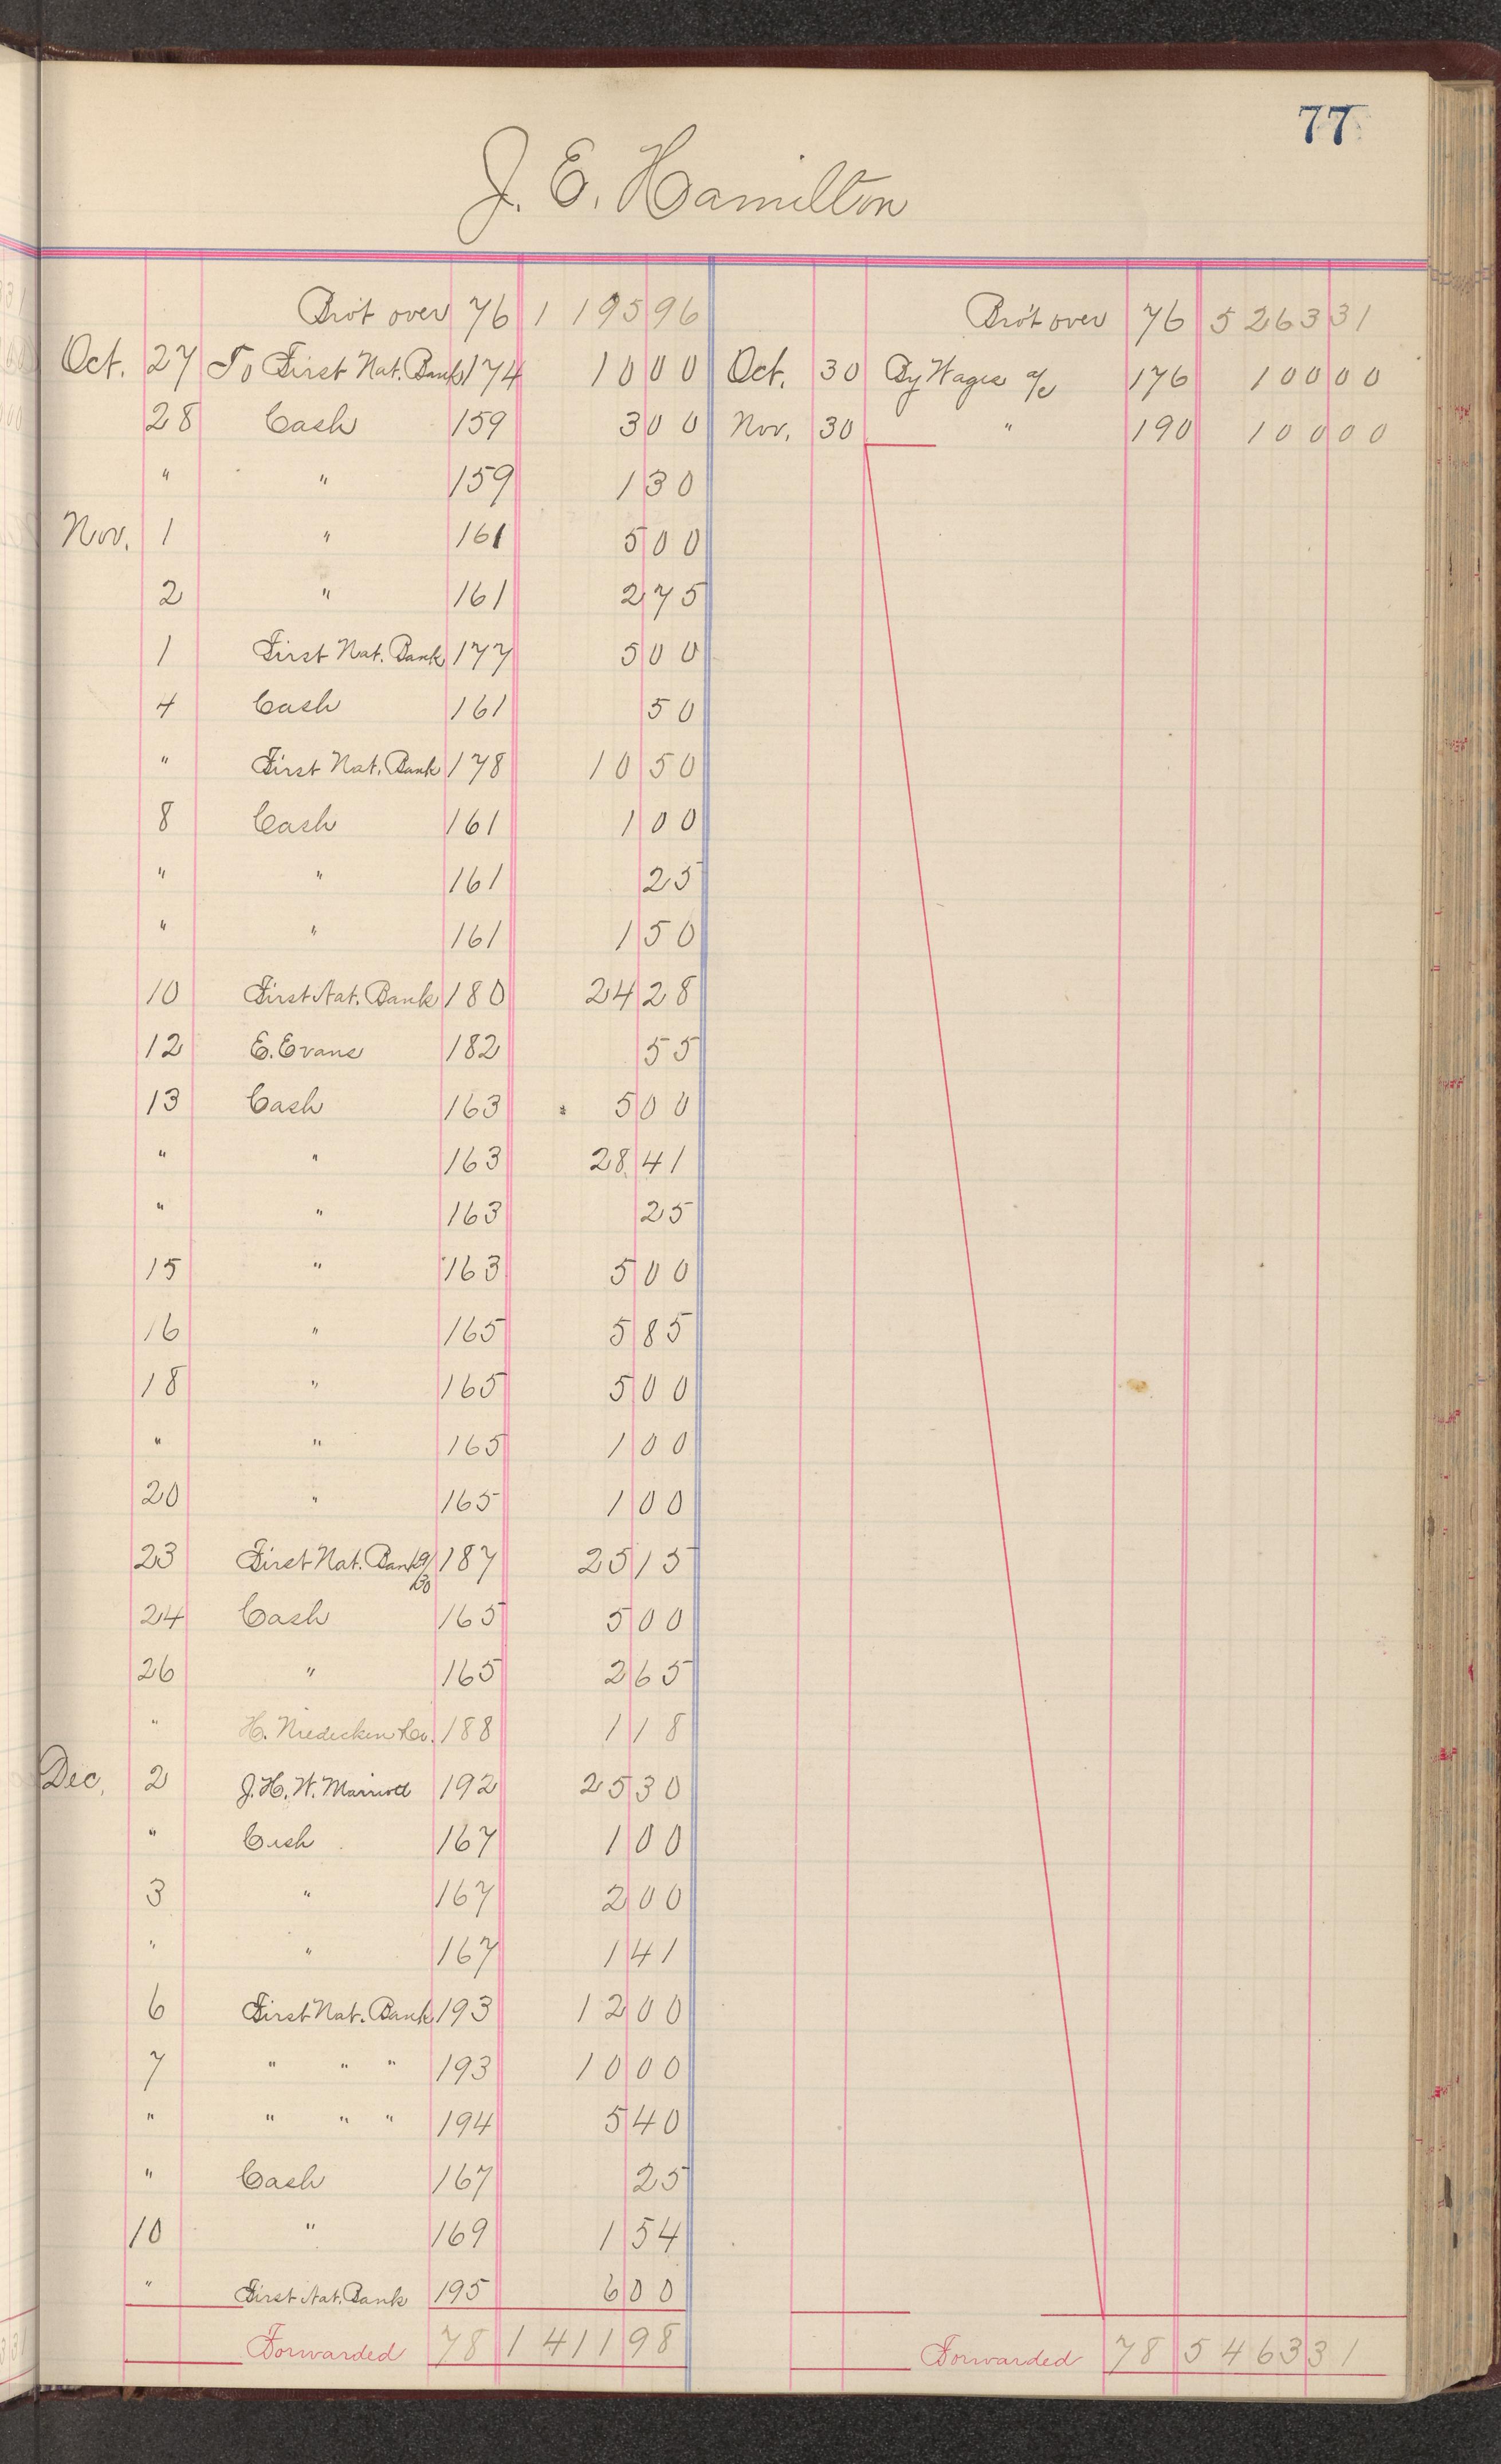 77
J. E. Hamilton
Bro't over 76 1 195 96 Bro't over 76 5 263 31
Oct. 27 To First Nat. Bank 174 10 00 Oct. 30 By Wages a/c 176 100 00
28 Cash 159 3 00 Nov. 30 " 190 100 00
" " 159 1 30
Nov. 1 " 161 5 00
2 " 161 2 75
1 First Nat. Bank 177 5 00
4 Cash 161 50
" First Nat. Bank 178 10 50
8 Cash 161 1 00
" " 161 25
" " 161 1 50
10 First Nat. Bank 180 24 28
12 E. Evans 182 55
13 Cash 163 5 00
" " 163 28 41
" " 163 25
15 " 163 5 00
16 " 165 5 85
18 " 165 5 00
" " 165 1 00
20 " 165 1 00
23 First Nat. Bank 9/30 187 25 15
24 Cash 165 5 00
26 " 165 2 65
" H. Niedecken Co. 188 1 18
Dec. 2 J. H. W. Marriott 192 25 30
" Cash 167 1 00
3 " 167 2 00
" " 167 1 41
6 First Nat. Bank 193 12 00
7 " " " 193 10 00
" " " " 194 5 40
" Cash 167 25
10 " 169 1 54
" First Nat. Bank 195 6 00
Forwarded 78 1 411 98 Forwarded 78 5 463 31